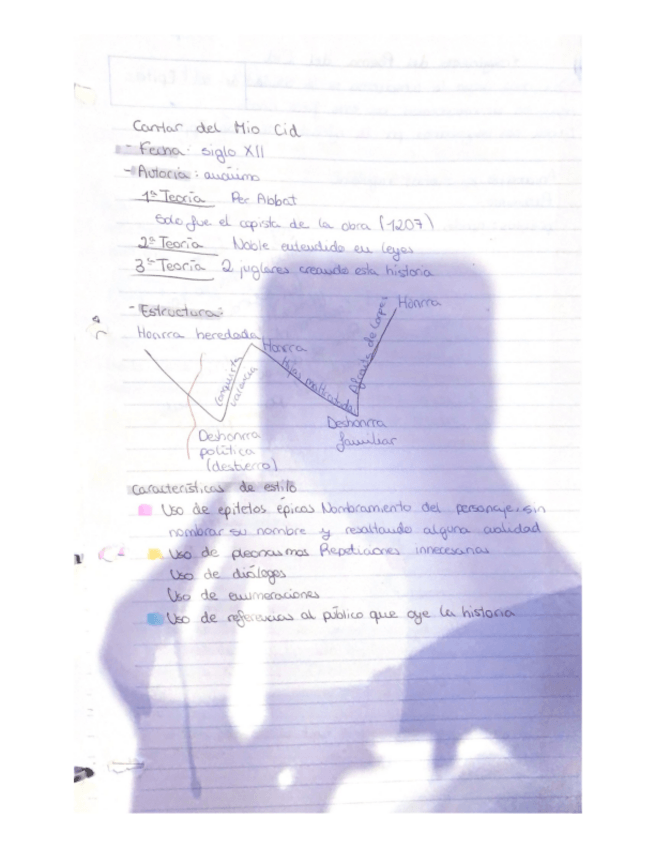 Cantar del Mio Cid
- Fecha: siglo XII
- Autoría: anónimo
1ª Teoría Per Abbat
Solo fue el copista de la obra (1207)
2ª Teoría Noble entendido en leyes
3ª Teoría 2 juglares creando esta historia
- Estructura:
Honrra heredada
Honrra
Honrra
conquista
Valencia
Hijas maltratadas
Afrenta de Corpes
Deshonrra
política
(destierro)
Deshonrra
familiar
Características de estilo
Uso de epítetos épicos Nombramiento del personaje sin
nombrar su nombre y resaltando alguna cualidad
Uso de pleonasmos Repeticiones innecesarias
Uso de diálogos
Uso de enumeraciones
Uso de referencias al público que oye la historia